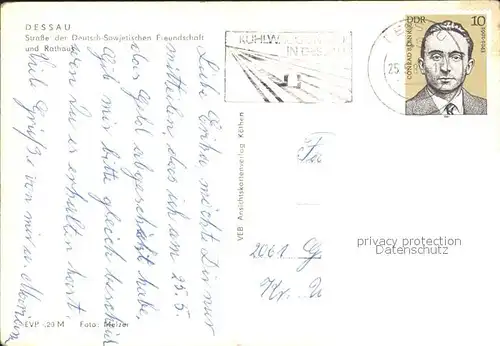 DESSAU
Straße der Deutsch-Sowjetischen Freundschaft
und Rathaus
IN DESSAU
25.
DDR 10
CONRAD BLENKLE
1901-1943
Liebe Erika möchte Dir nur
mitteilen, das ich am 25.5.
das Geld abgeschickt habe.
Gib mir bitte gleich bescheid
wenn Du es erhalten hast.
Viele Grüße von mir u. Marian
VEB Ansichtskartenverlag Köthen
Fa
2061 G
Kr. W
privacy protection
Datenschutz
EVP -,20 M Foto: Melzer